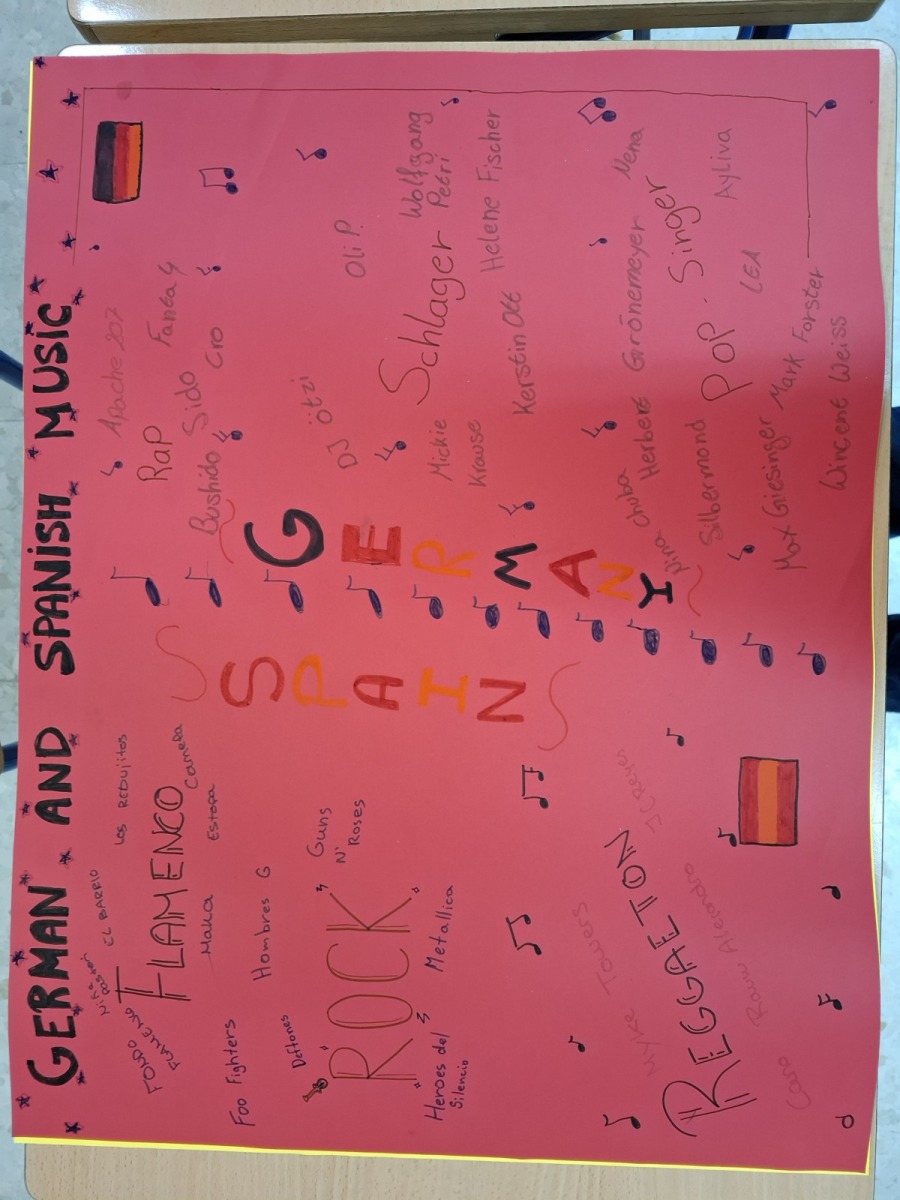 GERMAN AND SPANISH MUSIC
FONDO
FLAMENCO
Niña
Pastori
EL BARRIO
LOS REBUJITOS
FLAMENCO
Camela
Maka
Estopa
Foo Fighters
Hombres G
Deftones
Guns
N' Roses
ROCK
Heroes del
Silencio
Metallica
Myke Towers
JCReyes
REGGAETON
Rauw Alejandro
Caro
SPAIN
GERMANY
Apache 207
Rap
Fanta 4
Sido
Bushido
Cro
DJ Ötzi
Oli P.
Schlager
Wolfgang
Petri
Mickie
Krause
Helene Fischer
Kerstin Ott
Nina Chuba
Herbert Grönemeyer
Nena
Silbermond
POP-Singer
LEA
Ayliva
Max Giesinger
Mark Forster
Wincent Weiss